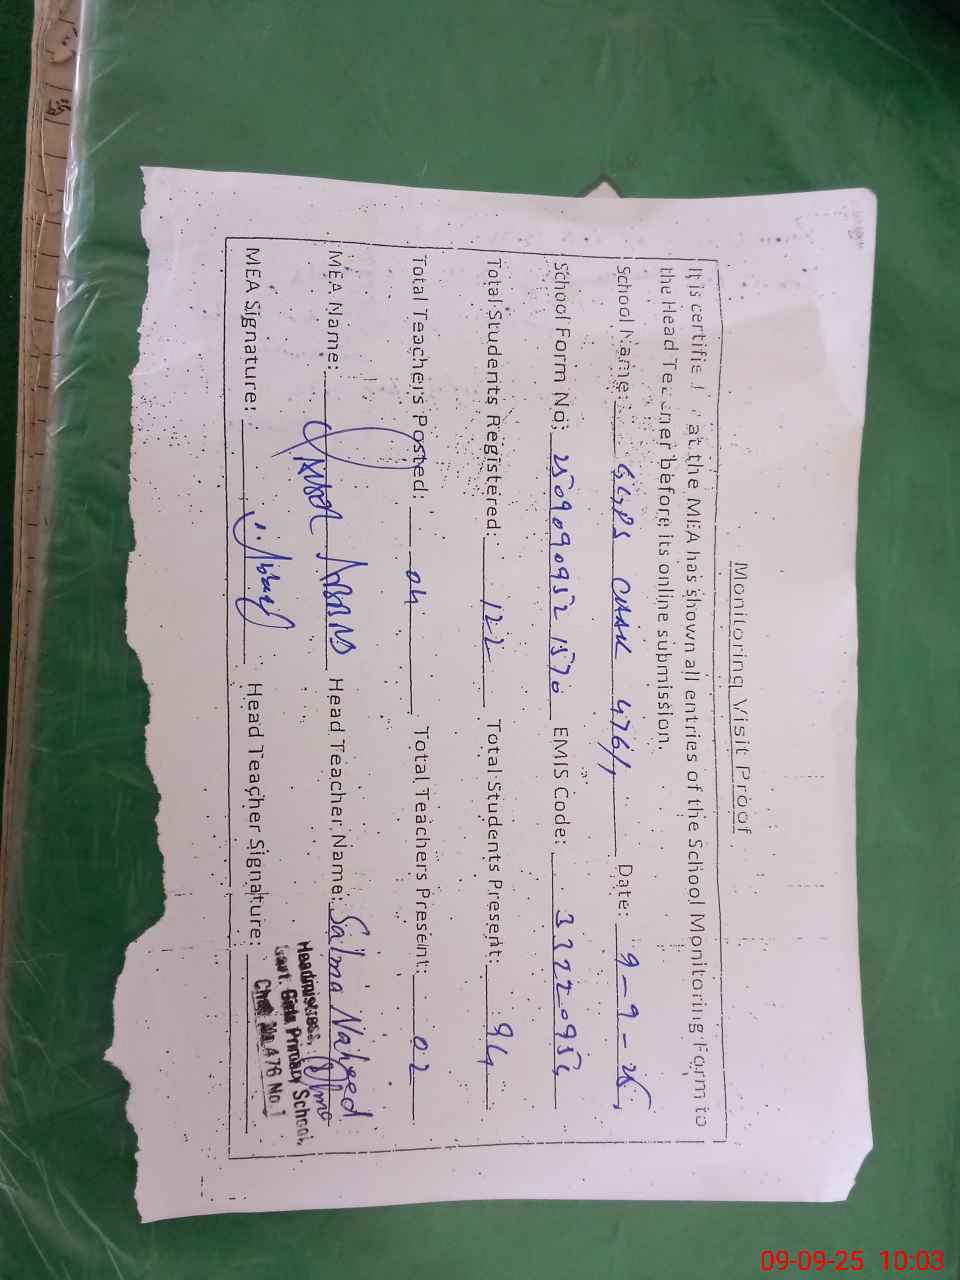 Monitoring Visit Proof
It is certified that the MEA has shown all entries of the School Monitoring Form to
the Head Teacher before its online submission.
School Name: GGPS CHAK 476/1 Date: 9-9-25
School Form No: 2509090952 1570 EMIS Code: 37220954
Total Students Registered: 122 Total Students Present: 94
Total Teachers Posted: 04 Total Teachers Present: 02
MEA Name: Head Teacher Name: Salma Naheed
MEA Signature: Head Teacher Signature:
Headmistress,
Govt. Girls Primary School,
Chak No. 476 No. 1
09-09-25 10:03